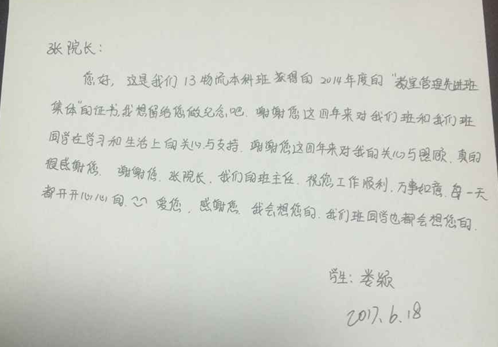 张院长:
您好,这是我们13物流本科班获得的2014年度的“教室管理先进班
集体”的证书,我想留给您做纪念吧.谢谢您这四年来对我们班和我们班
同学在学习和生活上的关心与支持.谢谢您这四年来对我的关心与照顾,真的
很感谢您.谢谢您.张院长,我们的班主任.祝您工作顺利,万事如意,每一天
都开开心心的.爱您,感谢您.我会想您的.我们班同学也都会想您的.
学生:娄颖
2017.6.18